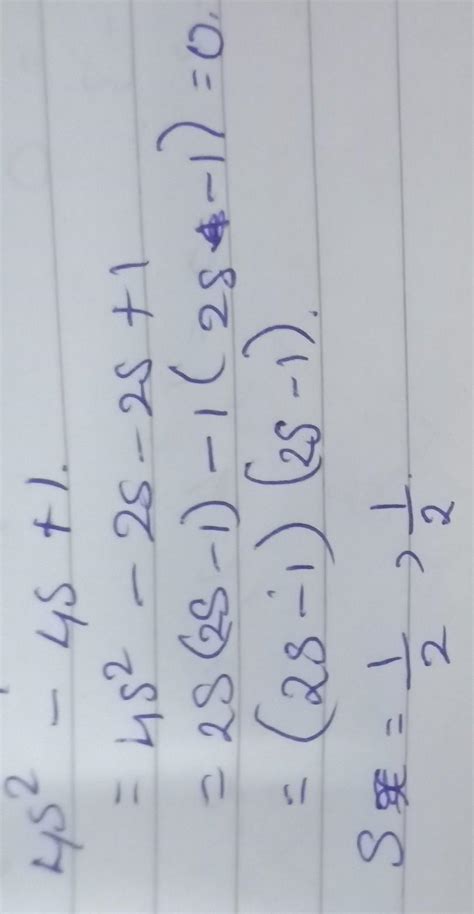 4s² - 4s + 1.
= 4s² - 2s - 2s + 1
= 2s(2s - 1) - 1(2s - 1) = 0.
= (2s - 1) (2s - 1).
s = 1/2 , 1/2